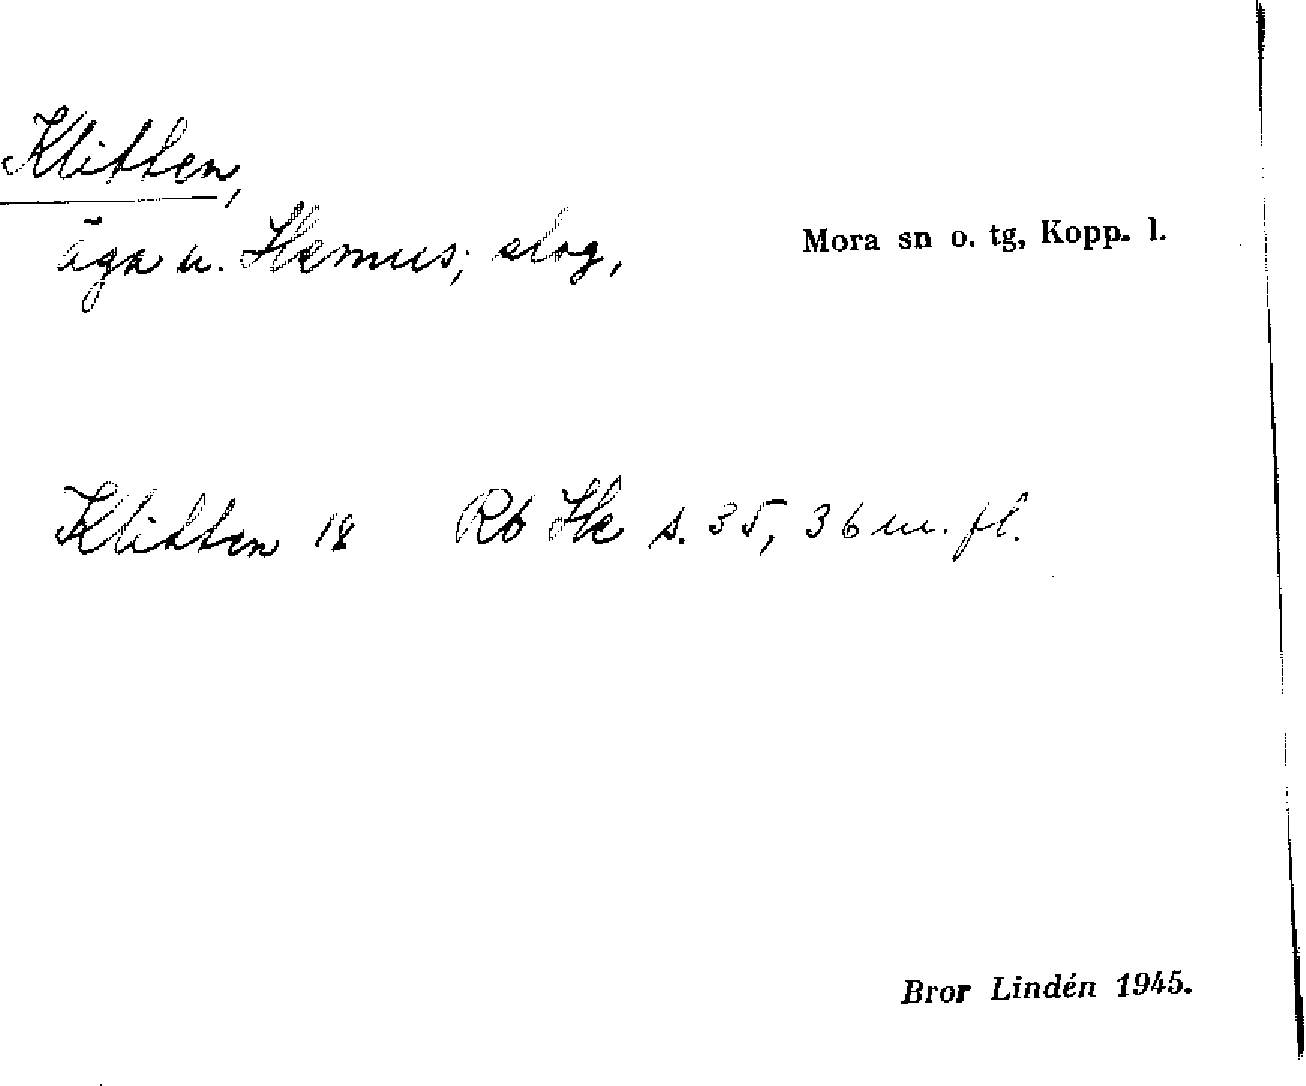 Klitten,
äga u. Hemus; slog,
Mora sn o. tg, Kopp. l.
Klitten 18 Rb Hk s. 35, 36 m. fl.
Bror Lindén 1945.